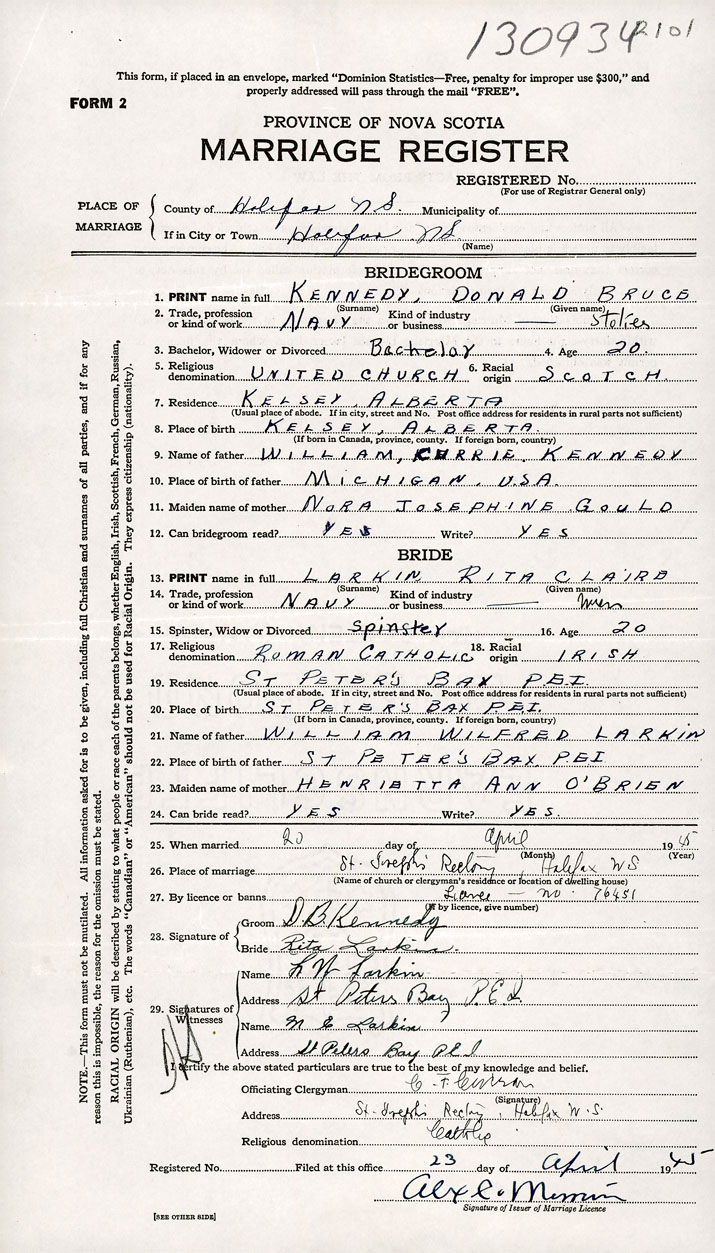 130934 2101
This form, if placed in an envelope, marked "Dominion Statistics—Free, penalty for improper use $300," and
properly addressed will pass through the mail "FREE".
FORM 2
PROVINCE OF NOVA SCOTIA
MARRIAGE REGISTER
REGISTERED No.
(For use of Registrar General only)
PLACE OF MARRIAGE
County of Halifax N.S. Municipality of
If in City or Town Halifax NS
(Name)
BRIDEGROOM
1. PRINT name in full KENNEDY, DONALD BRUCE
(Surname) (Given name)
2. Trade, profession or kind of work NAVY Kind of industry or business — Stoker
3. Bachelor, Widower or Divorced Bachelor 4. Age 20.
5. Religious denomination UNITED CHURCH 6. Racial origin SCOTCH.
7. Residence KELSEY, ALBERTA
(Usual place of abode. If in city, street and No. Post office address for residents in rural parts not sufficient)
8. Place of birth KELSEY, ALBERTA.
(If born in Canada, province, county. If foreign born, country)
9. Name of father WILLIAM, CURRIE KENNEDY
10. Place of birth of father MICHIGAN. U.S.A.
11. Maiden name of mother NORA JOSEPHINE GOULD
12. Can bridegroom read? YES Write? YES
BRIDE
13. PRINT name in full LARKIN RITA CLAIRE
(Surname) (Given name)
14. Trade, profession or kind of work NAVY Kind of industry or business — Wren
15. Spinster, Widow or Divorced Spinster 16. Age 20
17. Religious denomination ROMAN CATHOLIC 18. Racial origin IRISH
19. Residence ST PETER'S BAY P.E.I.
(Usual place of abode. If in city, street and No. Post office address for residents in rural parts not sufficient)
20. Place of birth ST PETER'S BAY P.E.I.
(If born in Canada, province, county. If foreign born, country)
21. Name of father WILLIAM WILFRED LARKIN
22. Place of birth of father ST PETER'S BAY PEI
23. Maiden name of mother HENRIETTA ANN O'BRIEN
24. Can bride read? YES Write? YES.
25. When married 20 day of April 1945
(Month) (Year)
26. Place of marriage St. Joseph's Rectory, Halifax N S
(Name of church or clergyman's residence or location of dwelling house)
27. By licence or banns no. 76451
(If by licence, give number)
28. Signature of
Groom D.B. Kennedy
Bride Rita Larkin.
29. Signatures of Witnesses
Name Larkin
Address St Peters Bay P.E.I.
Name M E Larkin
Address St Peters Bay P.E.I
I certify the above stated particulars are true to the best of my knowledge and belief.
Officiating Clergyman
(Signature)
Address St. Joseph's Rectory, Halifax N.S.
Religious denomination Catholic
Registered No. Filed at this office 23 day of April 1945
Signature of Issuer of Marriage Licence
[SEE OTHER SIDE]
NOTE.—This form must not be mutilated. All information asked for is to be given, including full Christian and surnames of all parties, and if for any
reason this is impossible, the reason for the omission must be stated.
RACIAL ORIGIN will be described by stating to what people or race each of the parents belongs, whether English, Irish, Scottish, French, German, Russian,
Ukrainian (Ruthenian), etc. The words "Canadian" or "American" should not be used for Racial Origin. They express citizenship (nationality).